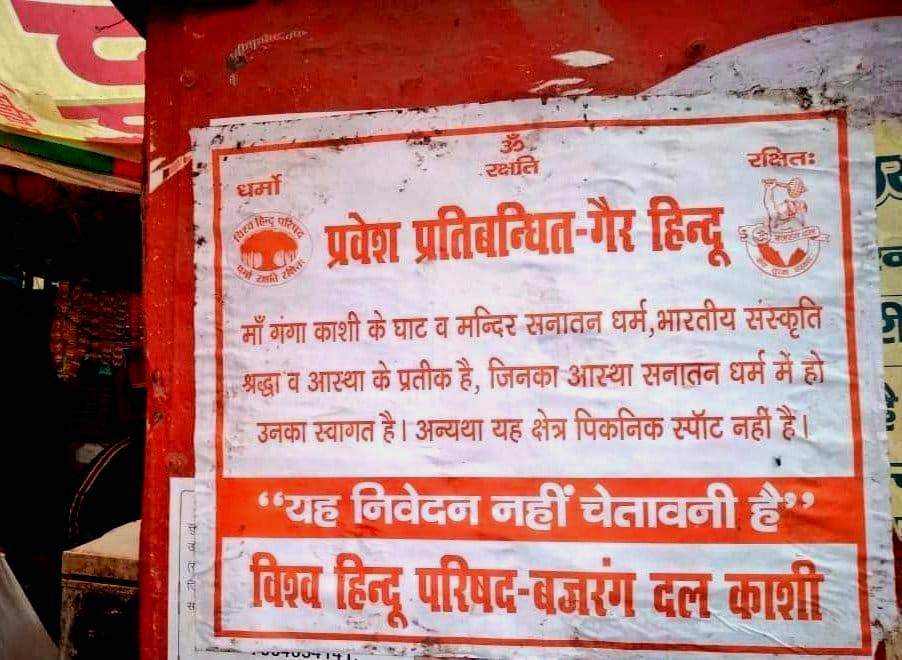 ॐ
धर्मो रक्षति रक्षितः
विश्व हिन्दू परिषद
धर्मो रक्षति रक्षितः
प्रवेश प्रतिबन्धित-गैर हिन्दू
बजरंग दल
माँ गंगा काशी के घाट व मन्दिर सनातन धर्म,भारतीय संस्कृति
श्रद्धा व आस्था के प्रतीक है, जिनका आस्था सनातन धर्म में हो
उनका स्वागत है। अन्यथा यह क्षेत्र पिकनिक स्पॉट नहीं है।
“यह निवेदन नहीं चेतावनी है”
विश्व हिन्दू परिषद-बजरंग दल काशी